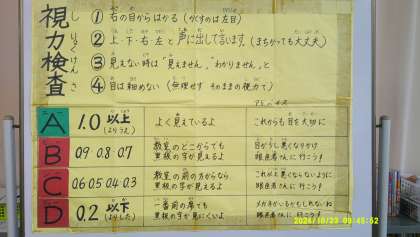 視力検査
しりょくけんさ
① 右の目からはかる (かくすのは左目)
② 上・下・右・左と声に出して言います。(まちがっても大丈夫)
③ 見えない時は"見えません。""わかりません。"と
④ 目は細めない (無理せず そのままの視力で)
A 1.0 以上 (よりうえ) よく見えているよ これからも目を大切に
B 0.9 0.8 0.7 教室のどこからでも黒板の字が見えるよ 目がうし悪くなりかけ 眼医者さんに行こう!
C 0.6 0.5 0.4 0.3 教室の前の方からなら黒板の字が見えるよ これ以上悪くならないように 眼医者さんに行こう!
D 0.2 以下 (よりした) 一番前の席でも黒板の字が見にくいよ メガネがいるかもしれないね 眼医者さんに行こう!
2024/10/23 09:45:52